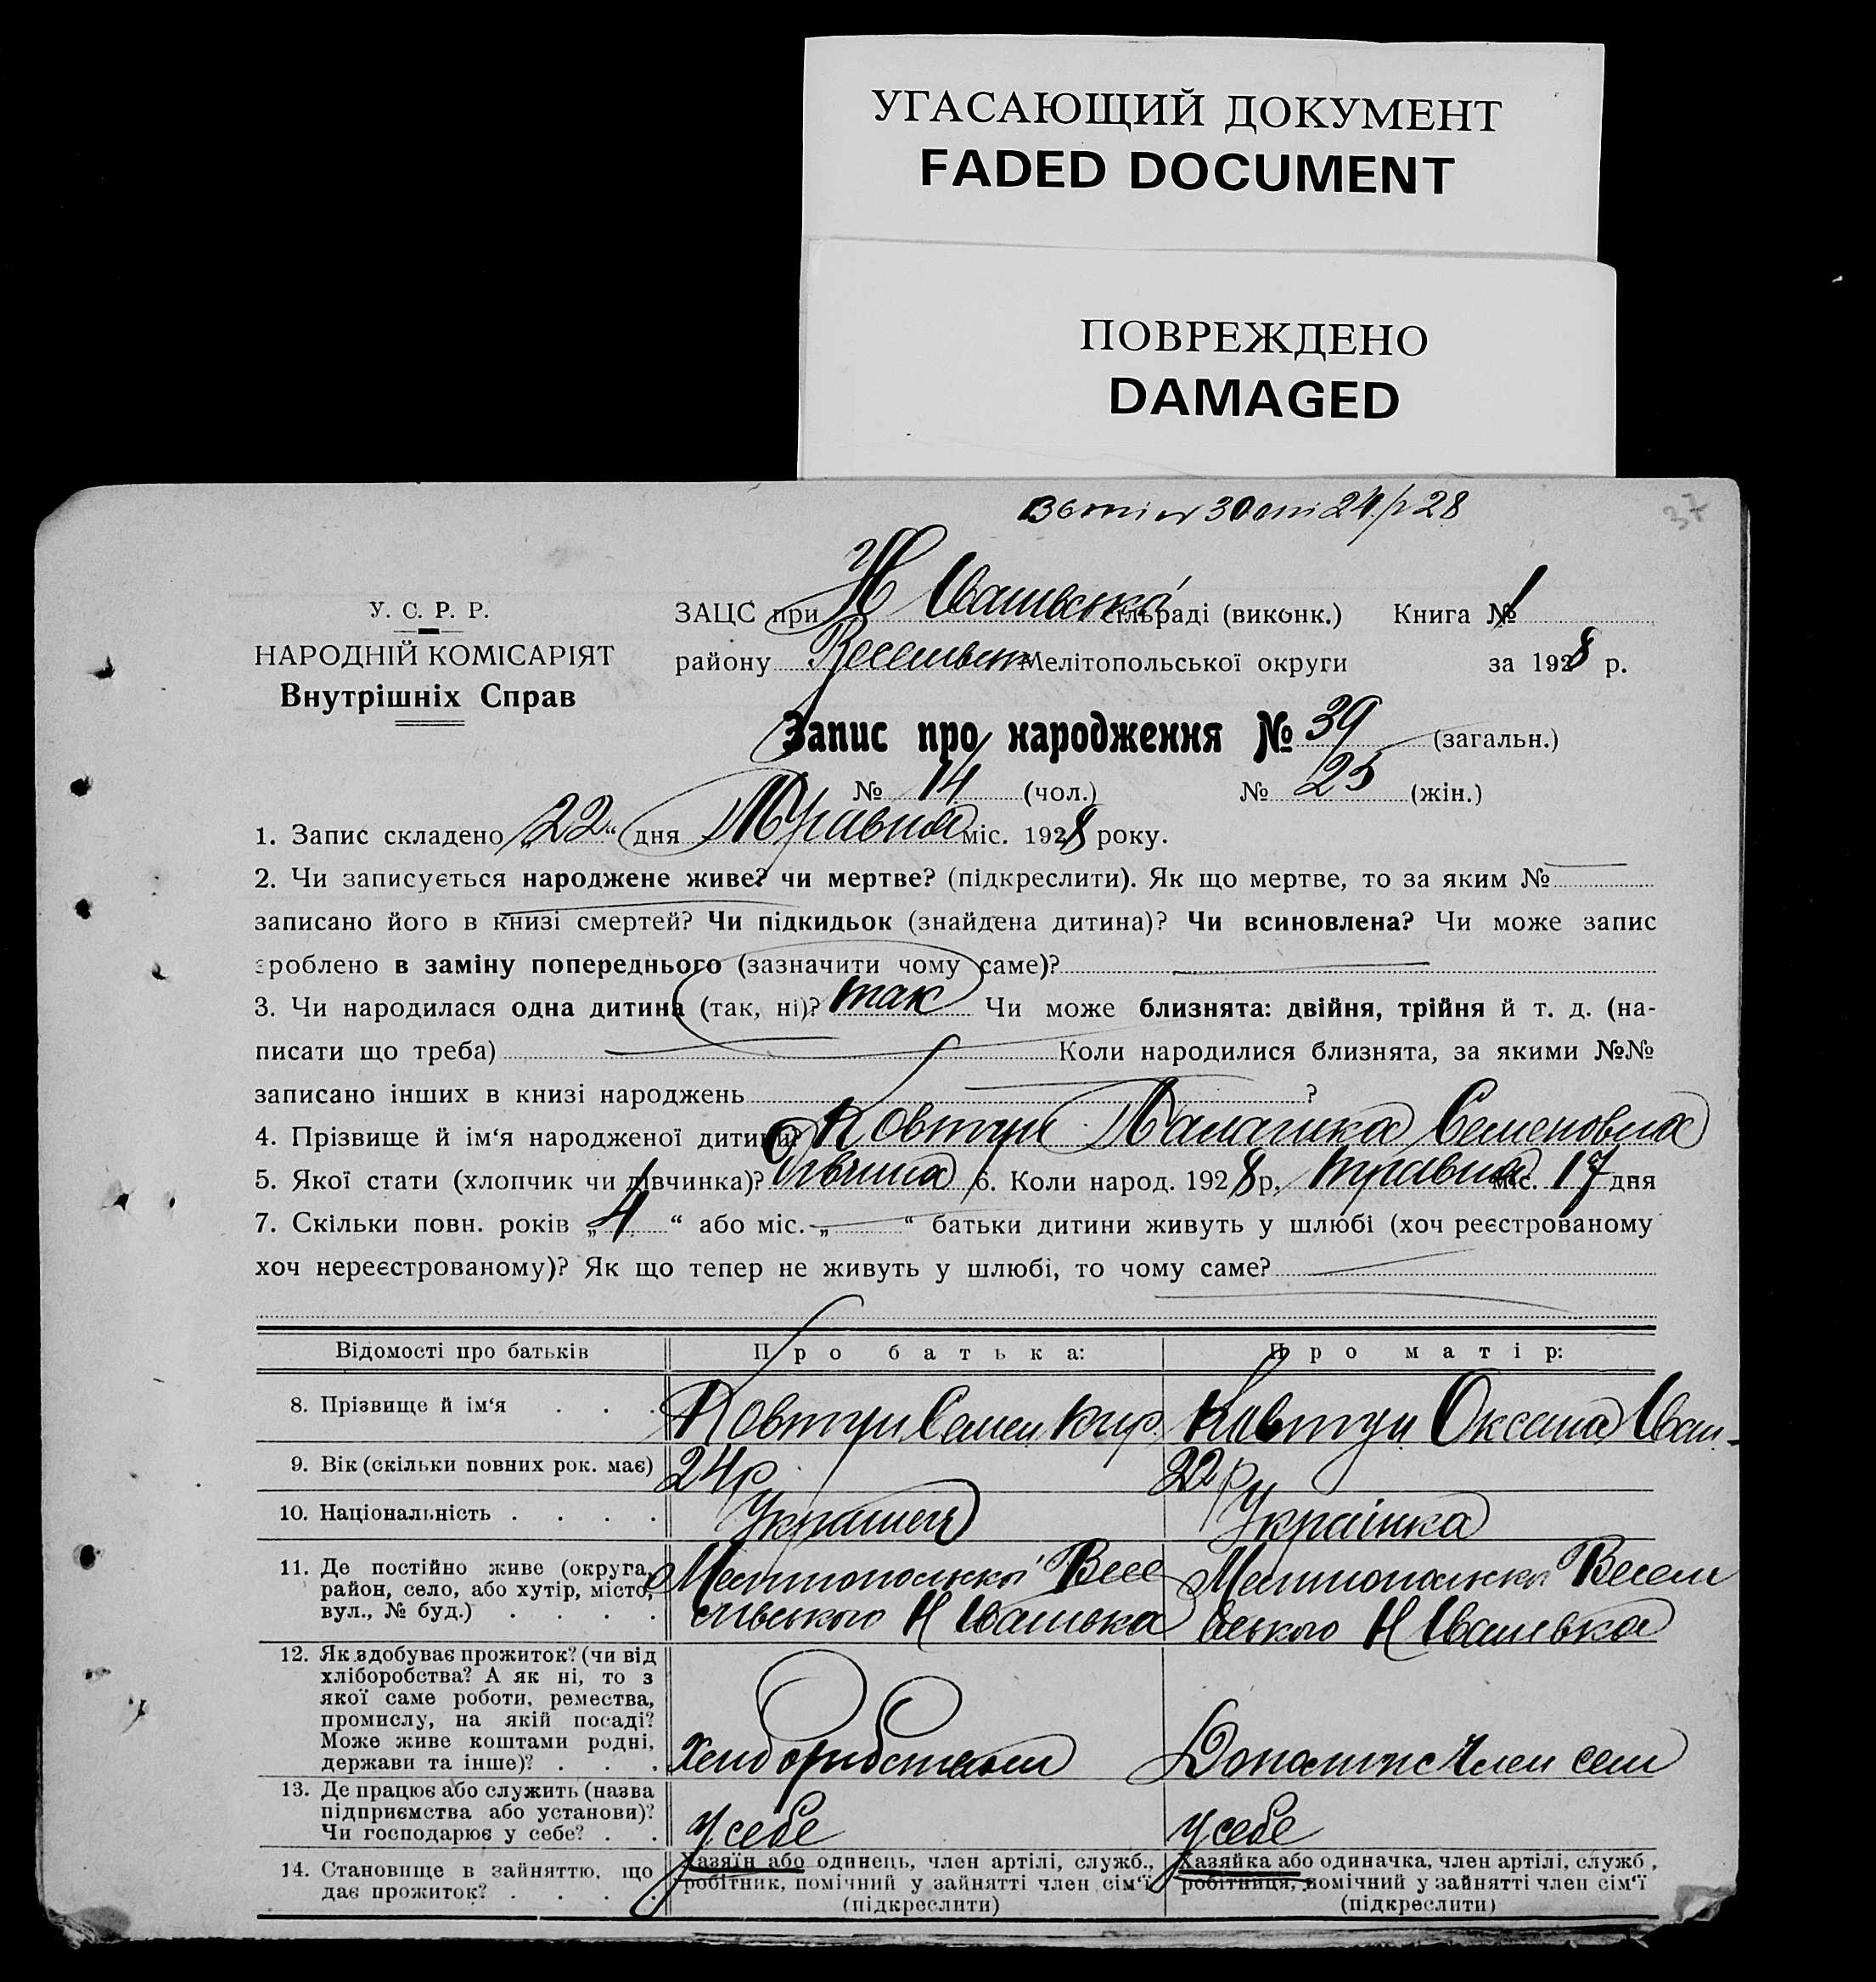 УГАСАЮЩИЙ ДОКУМЕНТ
FADED DOCUMENT
ПОВРЕЖДЕНО
DAMAGED
37
У. С. Р. Р.
НАРОДНІЙ КОМІСАРІЯТ
Внутрішніх Справ
ЗАЦС при Н Івашівській сільраді (виконк.) Книга № 1
району Веселівськ Мелітопольської округи за 1928 р.
Запис про народження № 39 (загальн.)
№ 14 (чол.) № 25 (жін.)
1. Запис складено „22“ дня Травня міс. 1928 року.
2. Чи записується народжене живе? чи мертве? (підкреслити). Як що мертве, то за яким №
записано його в книзі смертей? Чи підкидьок (знайдена дитина)? Чи всиновлена? Чи може запис
зроблено в заміну попереднього (зазначити чому саме)?
3. Чи народилася одна дитина (так, ні)? так Чи може близнята: двійня, трійня й т. д. (на-
писати що треба) Коли народилися близнята, за якими №№
записано інших в книзі народжень ?
4. Прізвище й ім‘я народженої дитини? Ковтун Палашка Семеновна
5. Якої стати (хлопчик чи дівчинка)? Дівчина 6. Коли народ. 1928 р. травня міс. 17 дня
7. Скільки повн. років „4“ або міс. „ “ батьки дитини живуть у шлюбі (хоч реєстрованому
хоч нереєстрованому)? Як що тепер не живуть у шлюбі, то чому саме?
Відомості про батьків Про батька: Про матір:
8. Прізвище й ім‘я . . . Ковтун Семен Кир. Ковтун Оксана Іван.
9. Вік (скільки повних рок. має) 24 р 22 р
10. Національність . . . . Українец Українка
11. Де постійно живе (округа, район, село, або хутір, місто, вул., № буд.) . . . . Мелітопольскої Весе
лівського Н Івашовка Мелітопольскої Весели
вського Н Івашовка
12. Як здобуває прожиток? (чи від
хліборобства? А як ні, то з
якої саме роботи, ремества,
промислу, на якій посаді?
Може живе коштами родні,
держави та інше)? . . . Хлиборобством Допомагає член семи
13. Де працює або служить (назва
підприємства або установи)?
Чи господарює у себе? . . У себе У себе
14. Становище в зайняттю, що
дає прожиток? . . . .
Хазяїн або одинець, член артілі, служб.,
робітник, помічний у зайнятті член сім‘ї
(підкреслити)
Хазяйка або одиначка, член артілі, служб.,
робітниця, помічний у зайнятті член сім‘ї
(підкреслити)